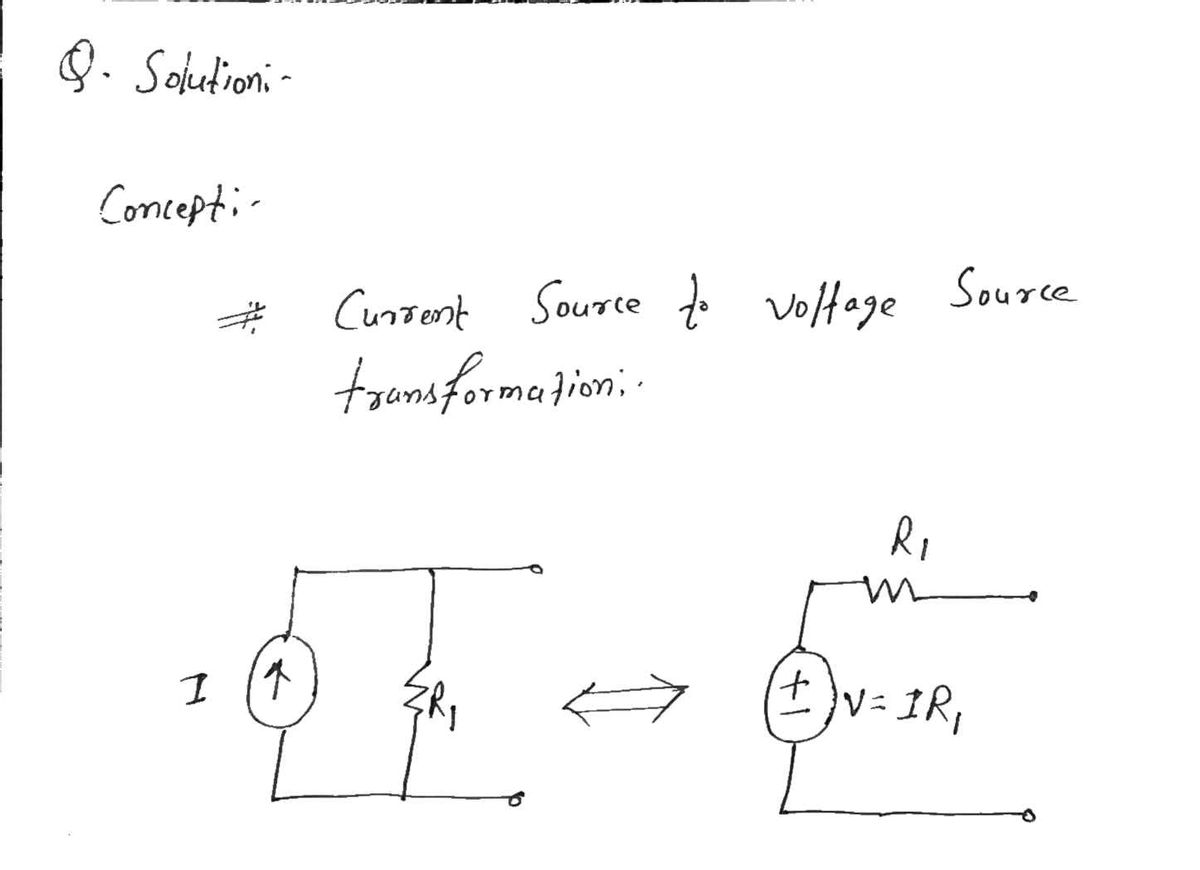 Q. Solution:-
Concept:-
# Current Source to voltage Source
transformation:-
R1
I
R1
V = IR1